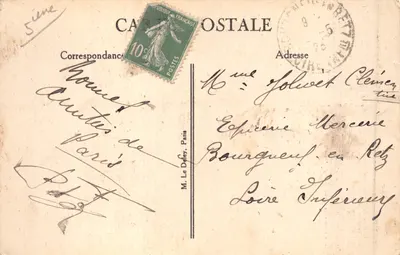 CARTE POSTALE
5ième
Correspondance
Adresse
10c
Bonnes
Amitiés de
Paris
M. Le Deley, Paris
Mme Jolivet Clémen
tine
Epicerie Mercerie
Bourgneuf en Retz
Loire Inférieure